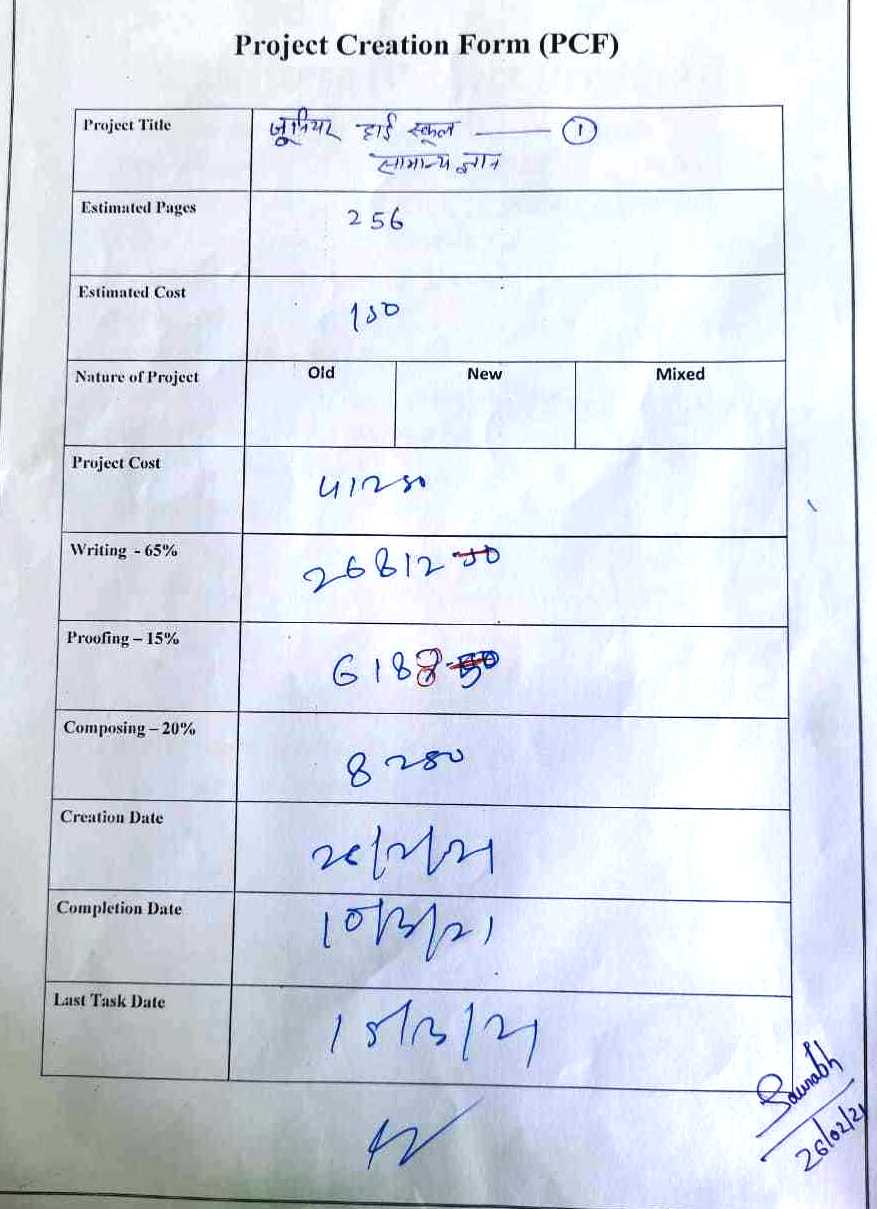 Project Creation Form (PCF)
Project Title जूनियर हाई स्कूल —— ①
सामान्य ज्ञान
Estimated Pages 256
Estimated Cost 150
Nature of Project Old New Mixed
Project Cost 41250
Writing - 65% 26812
Proofing – 15% 6188
Composing – 20% 8250
Creation Date 26/2/21
Completion Date 10/3/21
Last Task Date 15/3/21
Saurabh
26/02/21